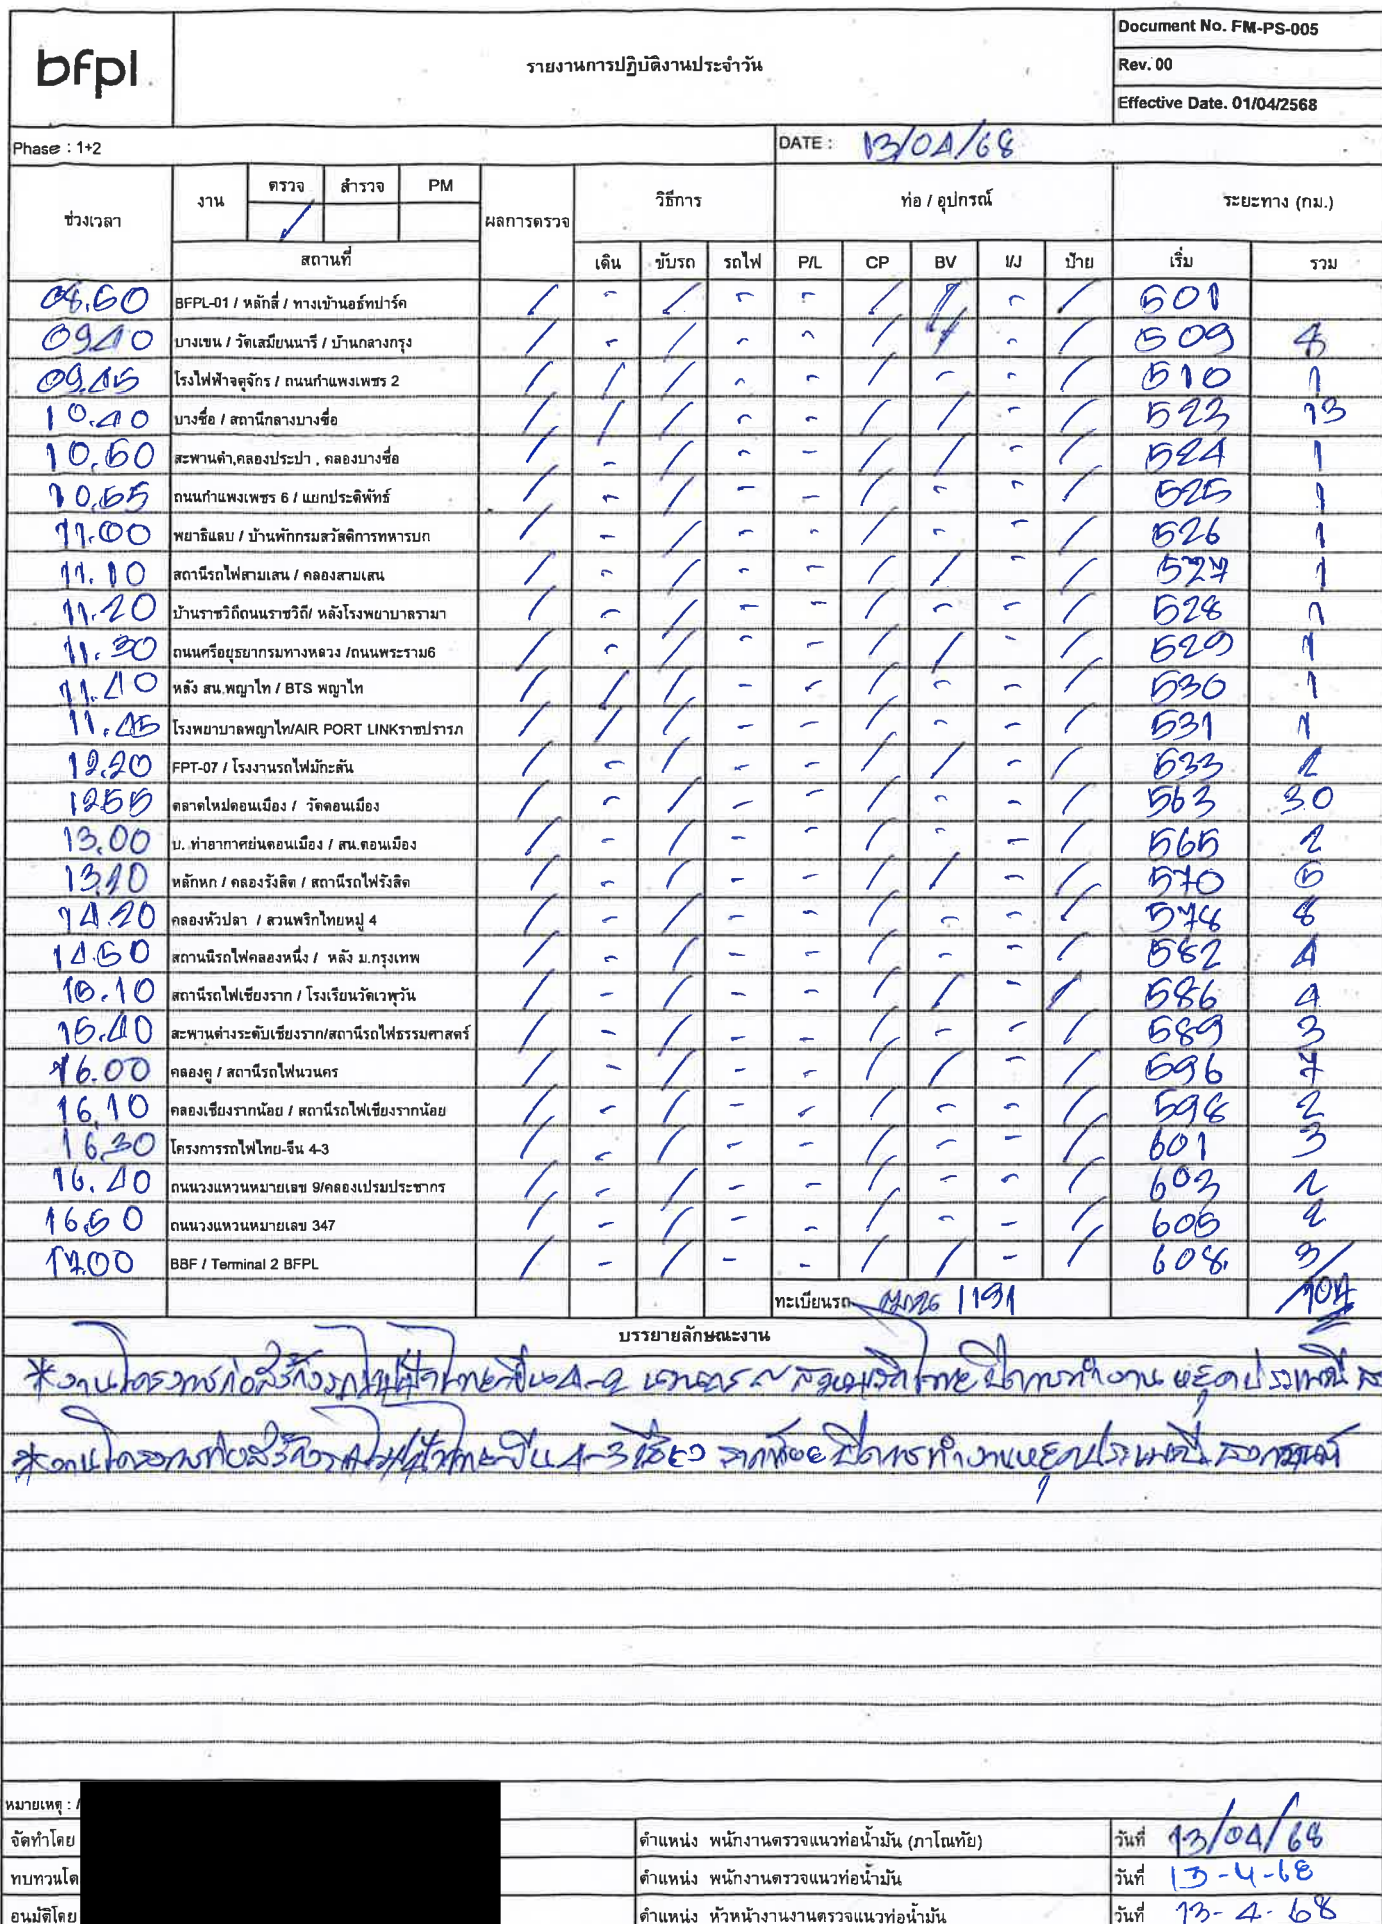 bfpl
รายงานการปฏิบัติงานประจำวัน
Document No. FM-PS-005
Rev. 00
Effective Date. 01/04/2568
Phase : 1+2 DATE : 13/04/68
ช่วงเวลา งาน ตรวจ สำรวจ PM ผลการตรวจ วิธีการ ท่อ / อุปกรณ์ ระยะทาง (กม.)
/
สถานที่ เดิน ขับรถ รถไฟ P/L CP BV I/J ป้าย เริ่ม รวม
08.50 BFPL-01 / หลักสี่ / ทางเข้านอร์ทปาร์ค / - / - - / / - / 501
09.40 บางเขน / วัดเสมียนนารี / บ้านกลางกรุง / - / - - / / - / 509 8
09.45 โรงไฟฟ้าจตุจักร / ถนนกำแพงเพชร 2 / / / - - / - - / 510 1
10.40 บางซื่อ / สถานีกลางบางซื่อ / / / - - / / - / 523 13
10.50 สะพานดำ,คลองประปา , คลองบางซื่อ / - / - - / / - / 524 1
10.55 ถนนกำแพงเพชร 6 / แยกประดิพัทธ์ / - / - - / - - / 525 1
11.00 พยาธิแลบ / บ้านพักกรมสวัสดิการทหารบก / - / - - / - - / 526 1
11.10 สถานีรถไฟสามเสน / คลองสามเสน / - / - - / / - / 527 1
11.20 บ้านราชวิถีถนนราชวิถี/ หลังโรงพยาบาลรามา / - / - - / - - / 528 1
11.30 ถนนศรีอยุธยากรมทางหลวง /ถนนพระราม6 / - / - - / / - / 529 1
11.40 หลัง สน.พญาไท / BTS พญาไท / / / - - / - - / 530 1
11.45 โรงพยาบาลพญาไท/AIR PORT LINKราชปรารภ / / / - - / - - / 531 1
12.20 FPT-07 / โรงงานรถไฟมักะสัน / - / - - / / - / 533 2
1255 ตลาดใหม่ดอนเมือง / วัดดอนเมือง / - / - - / - - / 563 30
13.00 บ. ท่าอากาศย่นดอนเมือง / สน.ดอนเมือง / - / - - / - - / 565 2
13.10 หลักหก / คลองรังสิต / สถานีรถไฟรังสิต / - / - - / / - / 570 5
14.20 คลองหัวปลา / สวนพริกไทยหมู่ 4 / - / - - / - - / 578 8
14.50 สถานนีรถไฟคลองหนึ่ง / หลัง ม.กรุงเทพ / - / - - / - - / 582 4
15.10 สถานีรถไฟเชียงราก / โรงเรียนวัดเวพุวัน / - / - - / / - / 586 4
15.40 สะพานต่างระดับเชียงราก/สถานีรถไฟธรรมศาสตร์ / - / - - / - - / 589 3
16.00 คลองคู / สถานีรถไฟนวนคร / - / - - / / - / 596 7
16.10 คลองเชียงรากน้อย / สถานีรถไฟเชียงรากน้อย / - / - - / - - / 598 2
16.30 โครงการรถไฟไทย-จีน 4-3 / - / - - / - - / 601 3
16.40 ถนนวงแหวนหมายเลข 9/คลองเปรมประชากร / - / - - / - - / 603 2
16.50 ถนนวงแหวนหมายเลข 347 / - / - - / - - / 605 2
17.00 BBF / Terminal 2 BFPL / - / - - / / - / 608. 3
ทะเบียนรถ 1191 107
บรรยายลักษณะงาน
*งานโครงการก่อสร้างรถไฟฟ้าไทย-จีน 4-2 นวนคร ปิดการทำงาน หยุดประเพณี
*งานโครงการก่อสร้างรถไฟฟ้าไทย-จีน 4-3 ปิดการทำงานหยุดประเพณี สงกรานต์
หมายเหตุ :
จัดทำโดย ตำแหน่ง พนักงานตรวจแนวท่อน้ำมัน (ภาโณทัย) วันที่ 13/04/68
ทบทวนโด ตำแหน่ง พนักงานตรวจแนวท่อน้ำมัน วันที่ 13-4-68
อนุมัติโดย ตำแหน่ง หัวหน้างานงานตรวจแนวท่อน้ำมัน วันที่ 13-4-68